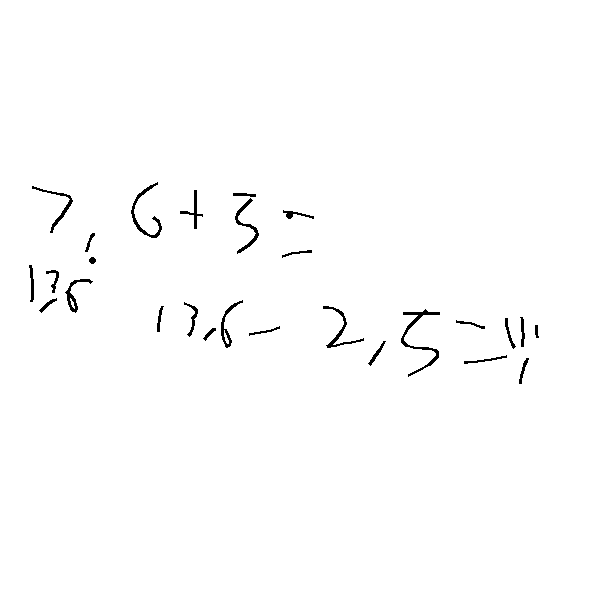 7,6+3=
13,6
13,6-2,5=11,1